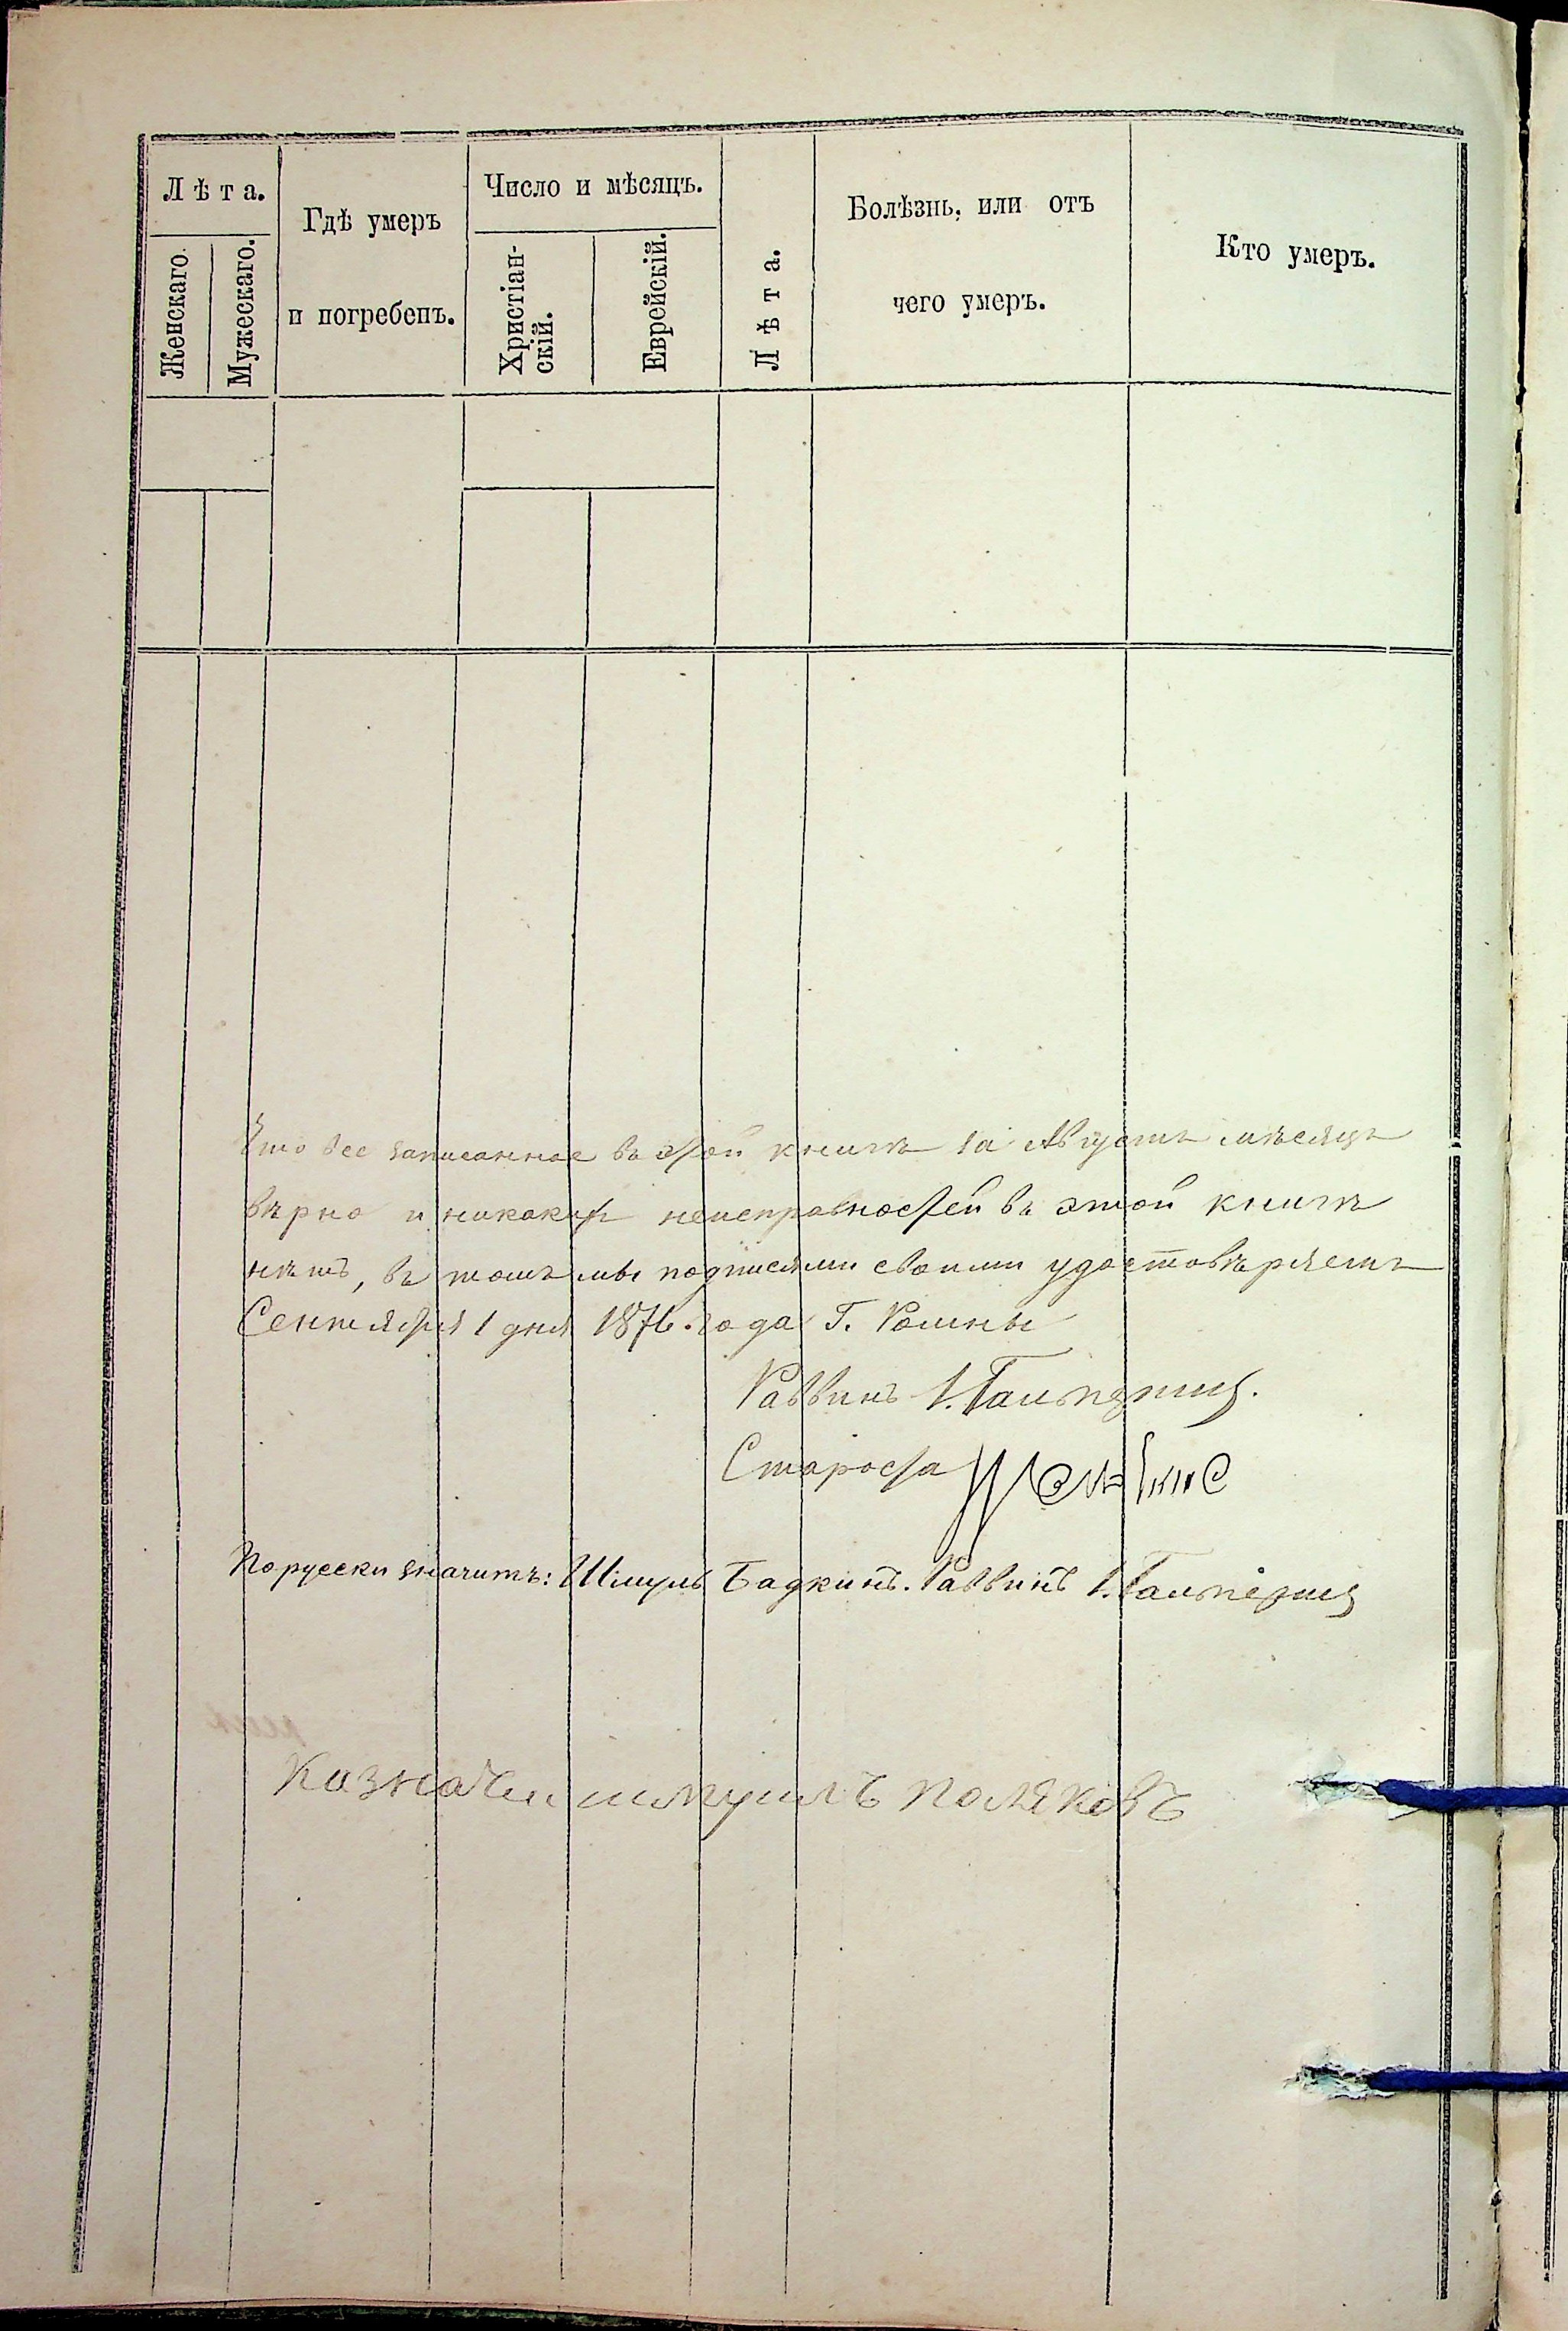 Лѣта.
Женскаго.
Мужескаго.
Гдѣ умеръ
и погребенъ.
Число и мѣсяцъ.
Христіан-
скій.
Еврейскій.
Лѣта.
Болѣзнь, или отъ
чего умеръ.
Кто умеръ.
Что все записанное въ этой книгѣ за Августъ мѣсяцъ
вѣрно и никакихъ неисправностей въ этой книгѣ
нѣтъ, въ томъ мы подписями своими удостовѣряемъ
Сентября 1 дня 1876 года Г. Ромны
Раввинъ І. Гальперинъ.
Староста
По русски значитъ: Шмуль Бадкинъ. Раввинъ І. Гальперинъ
Казначеи шмуилъ поляковъ